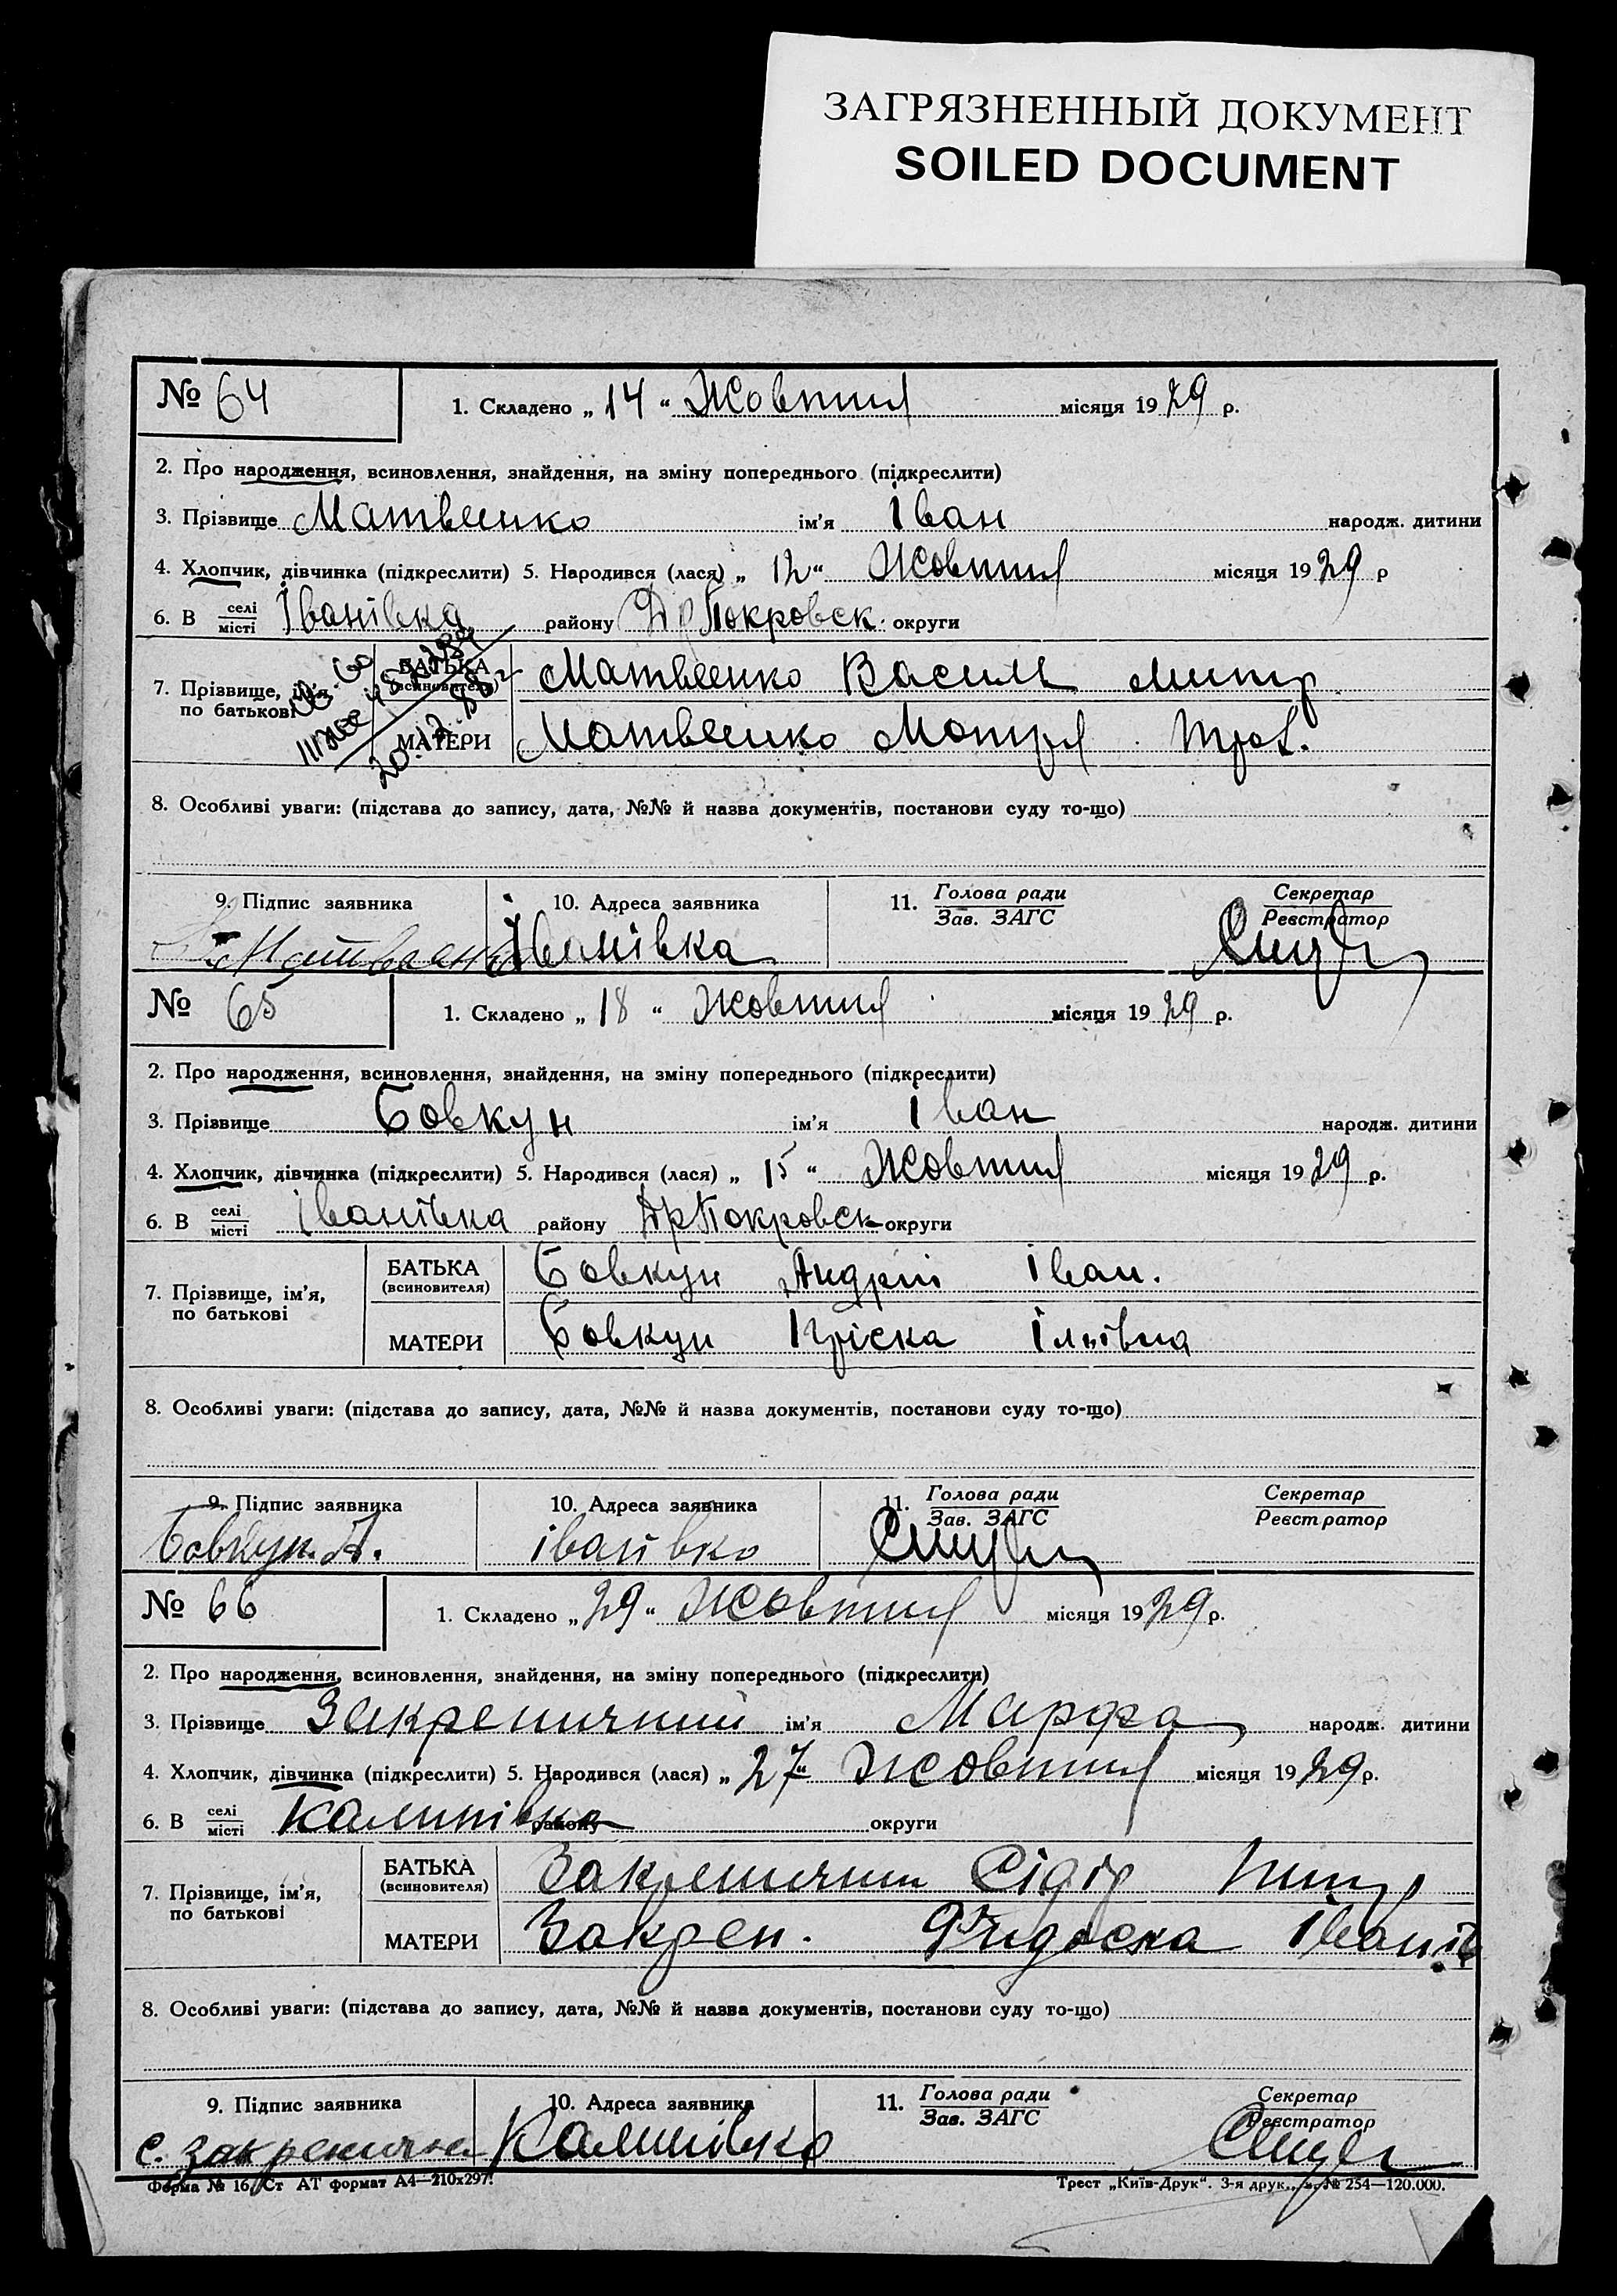 ЗАГРЯЗНЕННЫЙ ДОКУМЕНТ
SOILED DOCUMENT
№ 64 1. Складено „ 14 “ Жовтня місяця 1929 р.
2. Про народження, всиновлення, знайдення, на зміну попереднього (підкреслити)
3. Прізвище Матвеенко ім'я Іван народж. дитини
4. Хлопчик, дівчинка (підкреслити) 5. Народився (лася) „ 12 “ Жовтня місяця 1929 р
6. В селі місті Іванівка району Др Покровск. округи
7. Прізвище, ім'я, по батькові
БАТЬКА (всиновителя) Матвеенко Василь Митр.
МАТЕРИ Матвеенко Мотря
20.12.88
8. Особливі уваги: (підстава до запису, дата, №№ й назва документів, постанови суду то-що)
9. Підпис заявника 10. Адреса заявника 11. Голова ради Зав. ЗАГС Секретар Реєстратор
Матвеенко Іванівка
№ 65 1. Складено „ 18 “ Жовтня місяця 1929 р.
2. Про народження, всиновлення, знайдення, на зміну попереднього (підкреслити)
3. Прізвище Бовкун ім'я Іван народж. дитини
4. Хлопчик, дівчинка (підкреслити) 5. Народився (лася) „ 15 “ Жовтня місяця 1929 р.
6. В селі місті Іванівка району Др Покровск округи
7. Прізвище, ім'я, по батькові
БАТЬКА (всиновителя) Бовкун Андрій Іван.
МАТЕРИ Бовкун Пріска Іллівна
8. Особливі уваги: (підстава до запису, дата, №№ й назва документів, постанови суду то-що)
9. Підпис заявника 10. Адреса заявника 11. Голова ради Зав. ЗАГС Секретар Реєстратор
Бовкун. А. іванівка
№ 66 1. Складено „ 29 “ Жовтня місяця 1929 р.
2. Про народження, всиновлення, знайдення, на зміну попереднього (підкреслити)
3. Прізвище Закреничний ім'я Марфа народж. дитини
4. Хлопчик, дівчинка (підкреслити) 5. Народився (лася) „ 27 “ Жовтня місяця 1929 р.
6. В селі місті Калинівка району округи
7. Прізвище, ім'я, по батькові
БАТЬКА (всиновителя) Закреничний Сідір
МАТЕРИ Закрен. Федоска Іванів
8. Особливі уваги: (підстава до запису, дата, №№ й назва документів, постанови суду то-що)
9. Підпис заявника 10. Адреса заявника 11. Голова ради Зав. ЗАГС Секретар Реєстратор
с. закренична Калинівка
Форма № 16, Ст АТ формат А4—210х297.
Трест „Київ-Друк“. 3-я друк., з. № 254—120.000.